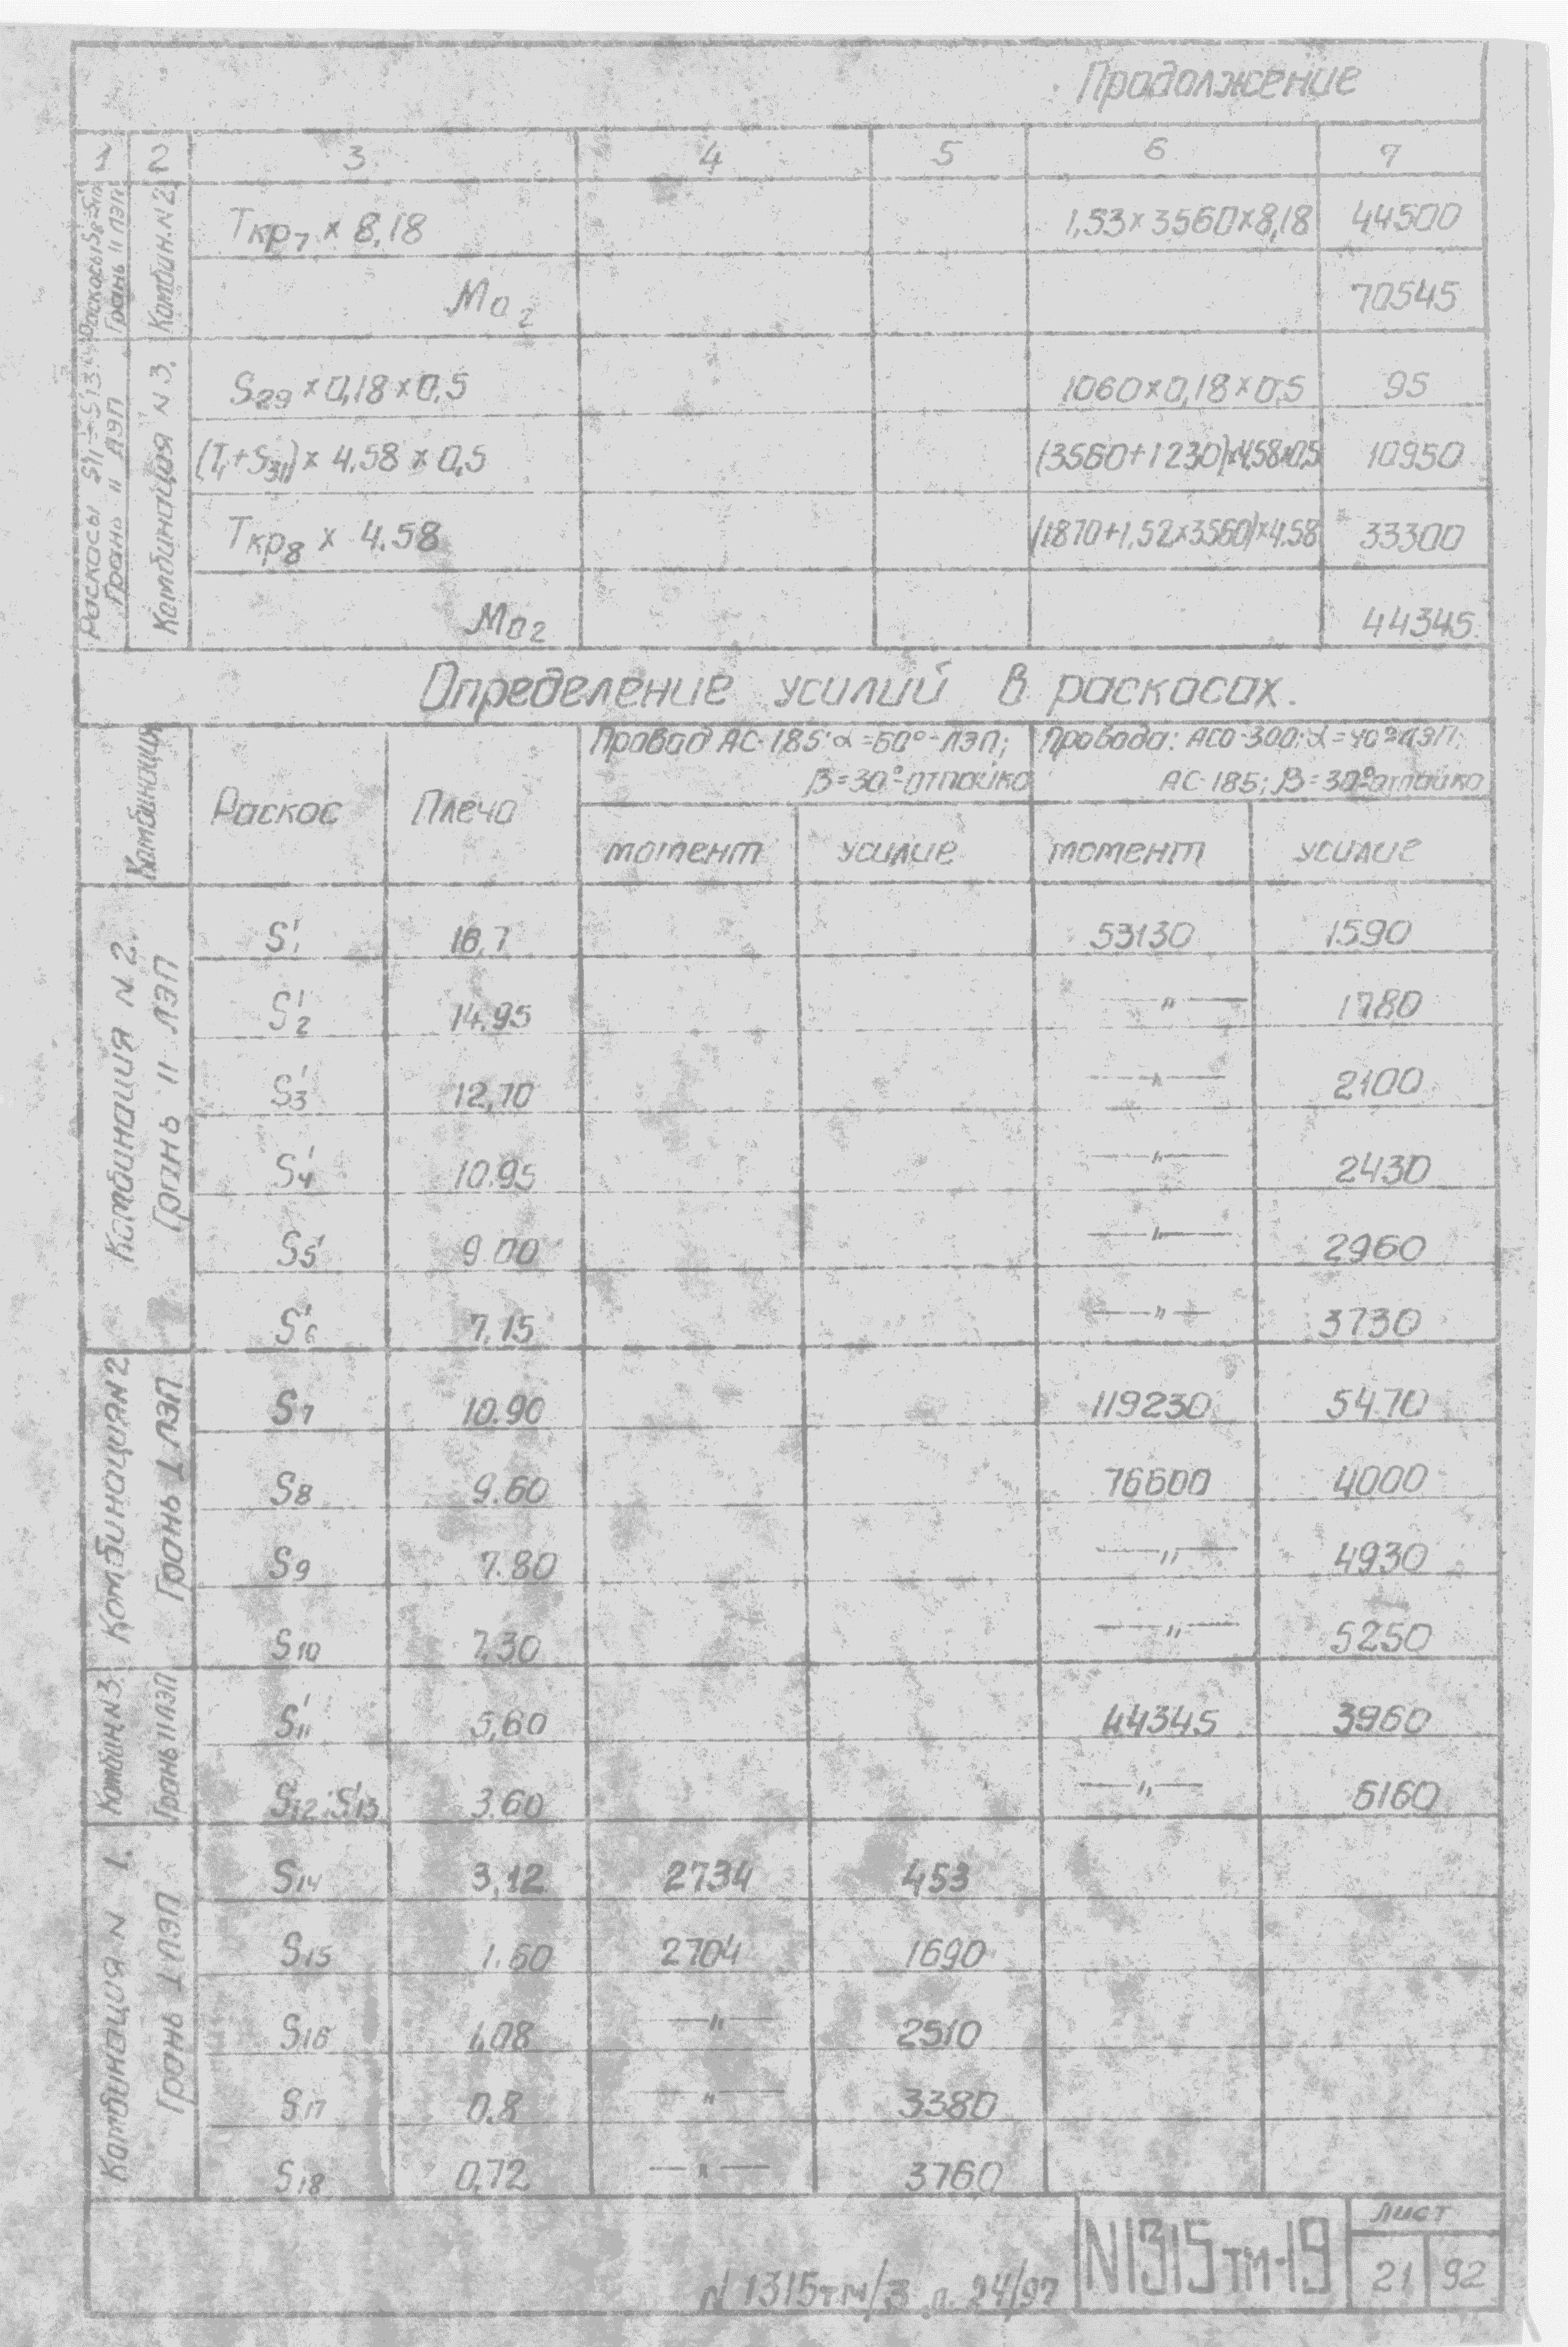 Продолжение
1 2 3 4 5 6 7
Раскосы S8-S10
Грань II ЛЭП
Комбин. N 2
Ткр7 x 8,18 1,53x3560x8,18 44500
Mo2 70545
Раскосы S'11-S'13.
Грань II ЛЭП
Комбинация N 3.
S29 x 0,18 x 0,5 1060x0,18x0,5 95
(T1+S31) x 4.58 x 0,5 (3560+1230)x4,58x0,5 10950
Ткр8 x 4.58 (1870+1,52x3560)x4.58 33300
Mo2 44345
Определение усилий в раскосах.
Комбинация
Раскос
Плечо
Провод АС-185; α=60°-ЛЭП;
β=30°-отпайка
Провода: АСО-300; α=40°-ЛЭП;
АС-185; β=30°-отпайка
момент усилие момент усилие
Комбинация N 2.
Грань II ЛЭП
S'1 16,7 53130 1590
S'2 14.95 —"— 1780
S'3 12,70 —"— 2100
S'4 10.95 —"— 2430
S5' 9.00 —"— 2960
S'6 7.15 —"— 3730
Комбинация N 2
Грань ⊥ ЛЭП
S7 10.90 119230 5470
S8 9.60 76600 4000
S9 7.80 —"— 4930
S10 7.30 —"— 5250
Комбин. N 3.
Грань II ЛЭП
S'11 5,60 44345 3960
S'12; S'13 3.60 —"— 6160
Комбинация N 1.
Грань ⊥ ЛЭП
S14 3,12 2734 453
S15 1.60 2704 1690
S16 1,08 —"— 2510
S17 0.8 —"— 3380
S18 0,72 —"— 3760
N 1315тм/3 л. 24/97
N1315тм-19
лист
21 92